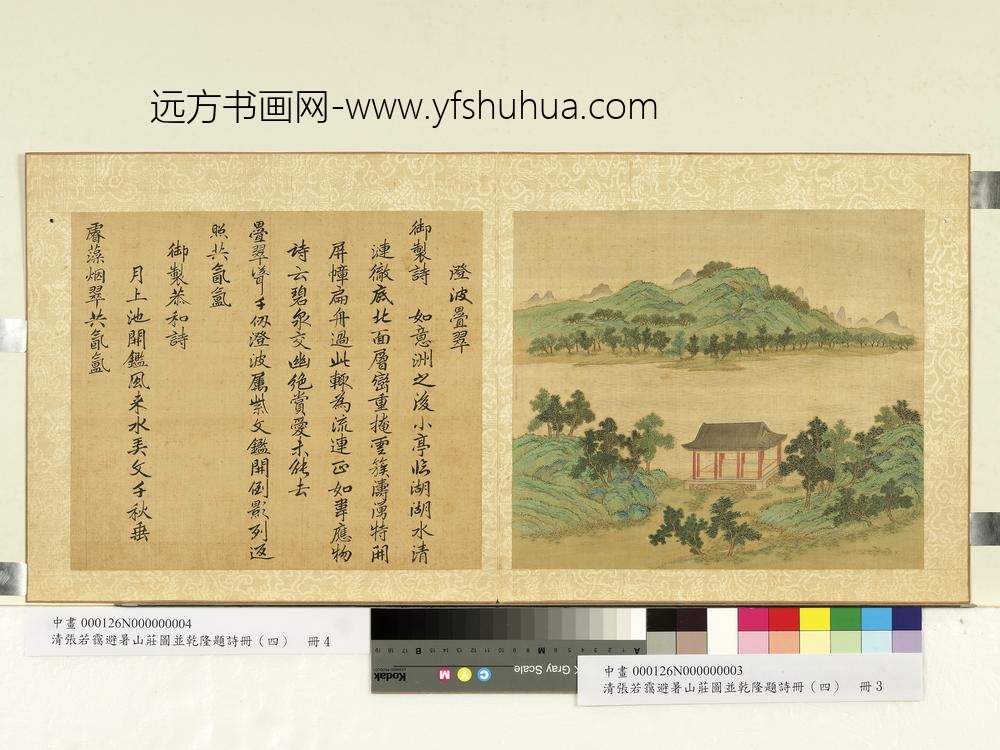 远方书画网-www.yfshuhua.com
澄波疊翠
御製詩 如意洲之後小亭临湖湖水清
漣徹底北面層巒重掩雲簇濤湧特開
屏幛扁舟過此輙為流連正如韋應物
詩云碧泉交幽絶賞愛未能去
疊翠聳千仭澄波属紫文鑑開倒影列返
照共氤氳
御製恭和詩
月上池開鑑風来水美文千秋垂
睿藻烟翠共氤氳
中畫 000126N000000004
清張若靄避暑山莊圖並乾隆題詩冊（四） 冊 4
中畫 000126N000000003
清張若靄避暑山莊圖並乾隆題詩冊（四） 冊 3
Kodak
C
Y
M
Gray Scale
A 1 2 3 4 5 6 M 8 9 10 11 12 13 14 15 B 17 18 19